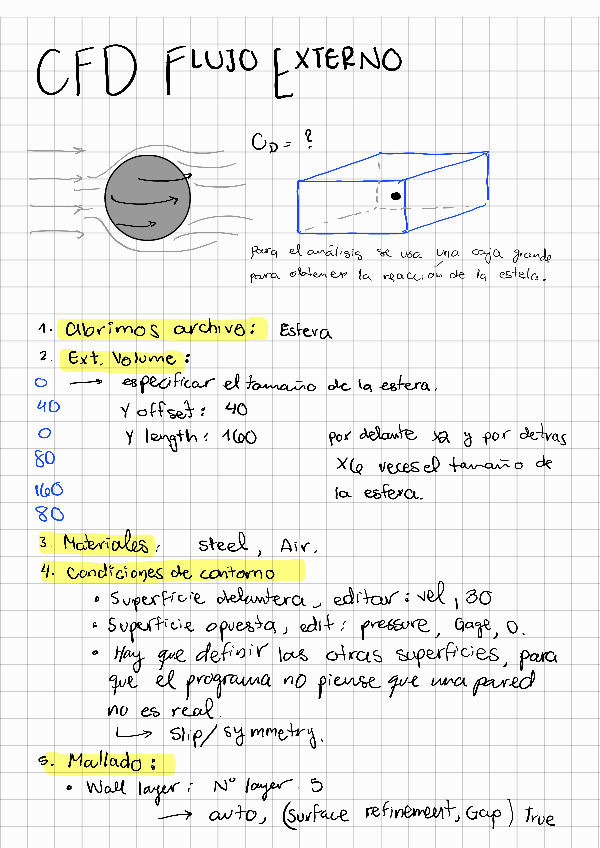 CFD FLUJO EXTERNO
CD = ?
para el análisis se usa una caja grande
para obtener la reacción de la estela.
1. Abrimos archivo: Esfera
2. Ext. Volume:
0 → especificar el tamaño de la esfera.
40 Y offset: 40
0 Y length: 160 por delante x2 y por detras
80 X6 veces el tamaño de
160 la esfera.
80
3. Materiales: steel, Air.
4. Condiciones de contorno
• Superficie delantera, editar: vel, 30
• Superficie opuesta, edit: pressure, Gage, 0.
• Hay que definir las otras superficies, para
que el programa no piense que una pared
no es real.
↳ Slip/symmetry.
5. Mallado:
• Wall layer: Nº layer 5
→ auto, (Surface refinement, Gap) True